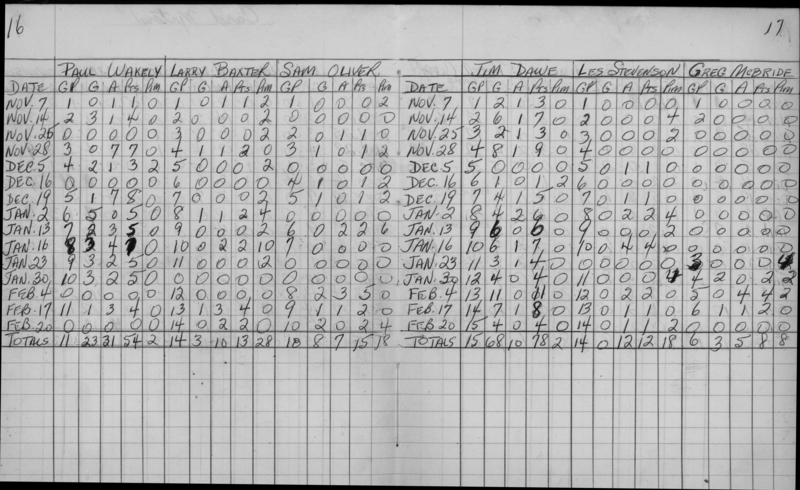 16
PAUL WAKELY LARRY BAXTER SAM OLIVER
DATE GP G A Pts Pim GP G A Pts Pim GP G A Pts Pim
NOV. 7 1 0 1 1 0 1 0 1 1 2 1 0 0 0 2
NOV. 14 2 3 1 4 0 2 0 0 0 2 0 0 0 0 0
NOV. 25 0 0 0 0 0 3 0 0 0 2 2 0 1 1 0
NOV. 28 3 0 7 7 0 4 1 1 2 0 3 1 0 1 2
DEC. 5 4 2 1 3 2 5 0 0 0 2 0 0 0 0 0
DEC. 16 0 0 0 0 0 6 0 0 0 0 4 1 0 1 2
DEC. 19 5 1 7 8 0 7 0 0 0 2 5 1 0 1 2
JAN. 2 6 5 0 5 0 8 1 1 2 4 0 0 0 0 0
JAN. 13 7 2 3 5 0 9 0 0 0 2 6 0 2 2 6
JAN. 16 8 3 4 7 0 10 0 2 2 10 7 0 0 0 0
JAN. 23 9 3 2 5 0 11 0 0 0 2 0 0 0 0 0
JAN. 30 10 3 2 5 0 0 0 0 0 0 0 0 0 0 0
FEB. 4 0 0 0 0 0 12 0 0 0 0 8 2 3 5 0
FEB. 17 11 1 3 4 0 13 1 3 4 0 9 1 1 2 0
FEB. 20 0 0 0 0 0 14 0 2 2 0 10 2 0 2 4
TOTALS 11 23 31 54 2 14 3 10 13 28 10 8 7 15 18
17
JIM DAWE LES STEVENSON GREG McBRIDE
DATE GP G A Pts Pim GP G A Pts Pim GP G A Pts Pim
NOV. 7 1 2 1 3 0 1 0 0 0 0 1 0 0 0 0
NOV. 14 2 6 1 7 0 2 0 0 0 4 2 0 0 0 0
NOV. 25 3 2 1 3 0 3 0 0 0 2 0 0 0 0 0
NOV. 28 4 8 1 9 0 4 0 0 0 0 0 0 0 0 0
DEC. 5 5 0 0 0 0 5 0 1 1 0 0 0 0 0 0
DEC. 16 6 1 0 1 2 6 0 0 0 0 0 0 0 0 0
DEC. 19 7 4 1 5 0 7 0 1 1 0 0 0 0 0 0
JAN. 2 8 4 2 6 0 8 0 2 2 4 0 0 0 0 0
JAN. 13 9 6 0 6 0 9 0 0 0 2 0 0 0 0 0
JAN. 16 10 6 1 7 0 10 0 4 4 0 0 0 0 0 0
JAN. 23 11 3 1 4 0 0 0 0 0 0 3 0 0 0 4
JAN. 30 12 4 0 4 0 11 0 0 0 4 4 2 0 2 2
FEB. 4 13 11 0 11 0 12 0 2 2 0 5 0 4 4 2
FEB. 17 14 7 1 8 0 13 0 1 1 0 6 1 1 2 0
FEB. 20 15 4 0 4 0 14 0 1 1 2 0 0 0 0 0
TOTALS 15 68 10 78 2 14 0 12 12 18 6 3 5 8 8